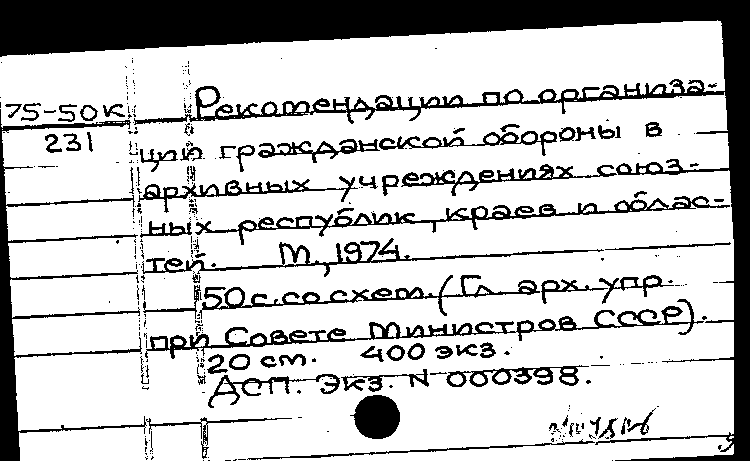 75-50К Рекомендации по организа-
231
ции гражданской обороны в
архивных учреждениях союз-
ных республик, краев и облас-
тей. М., 1974.
50 с. со схем. (Гл. арх. упр.
при Совете Министров СССР).
20 см. 400 экз.
ДСП. Экз. N 000398.